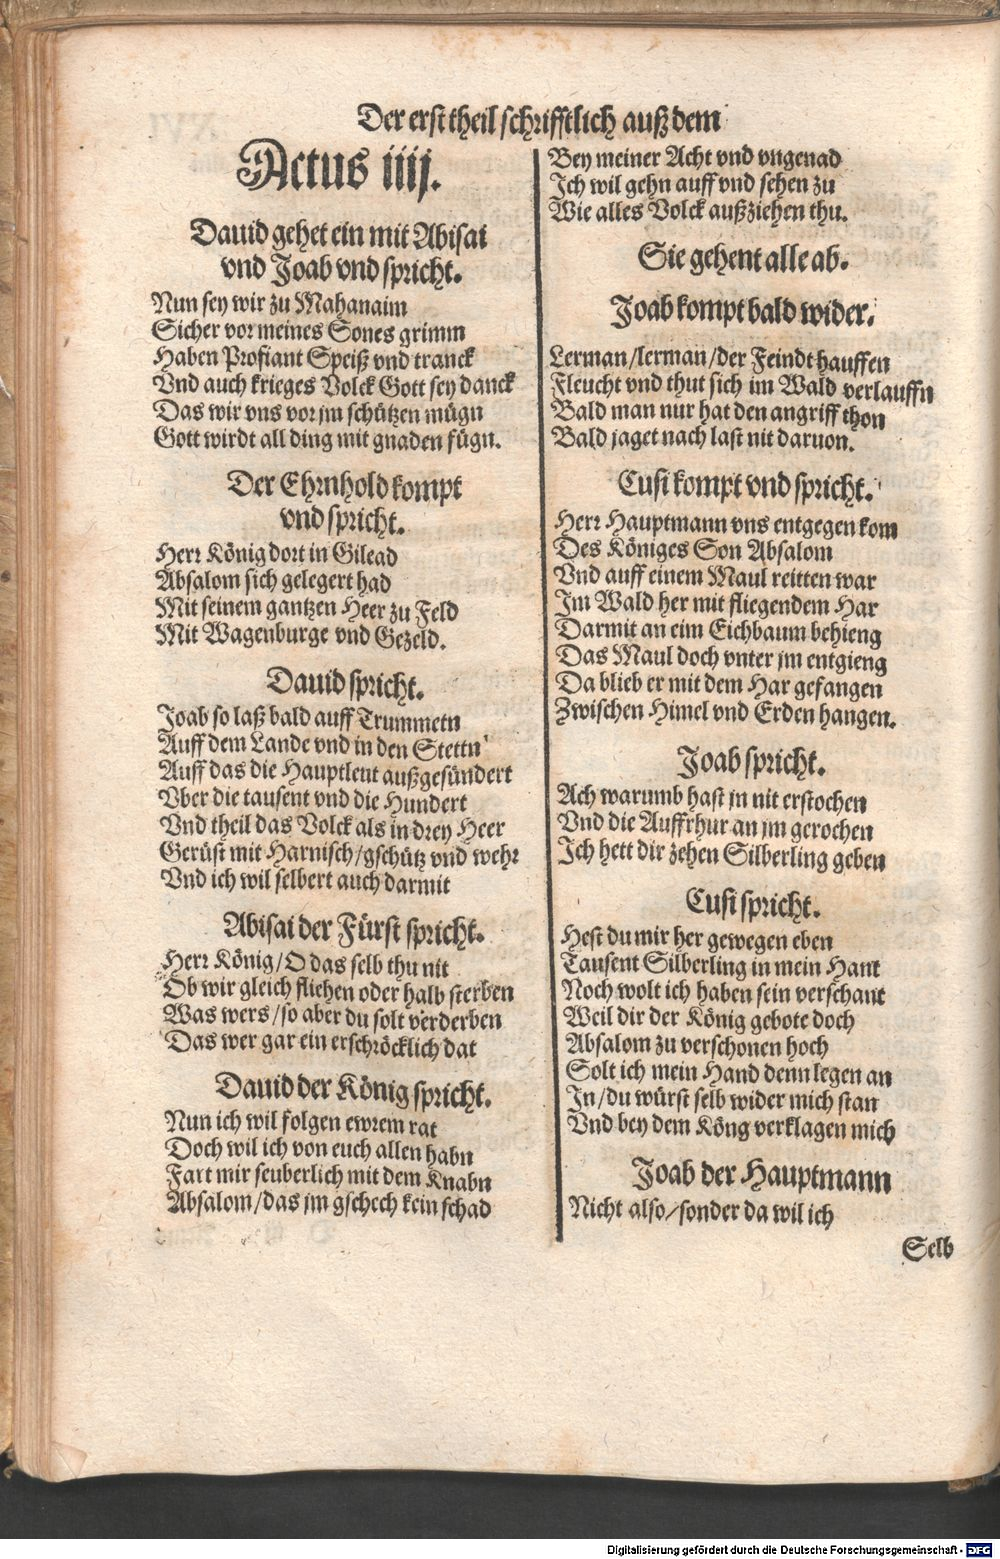 Der erst theil schrifftlich auß dem
Actus iiij.
Dauid gehet ein mit Abisai
vnd Joab vnd spricht.
Nun sey wir zu Mahanaim
Sicher vor meines Sones grimm
Haben Profiant Speiß vnd tranck
Vnd auch krieges Volck Gott sey danck
Das wir vns vor jm schützen mügn
Gott wirdt all ding mit gnaden fügn.
Der Ehrnhold kompt
vnd spricht.
Herr König dort in Gilead
Absalom sich gelegert had
Mit seinem gantzen Heer zu Feld
Mit Wagenburge vnd Gezeld.
Dauid spricht.
Joab so laß bald auff Trummetn
Auff dem Lande vnd in den Stettn
Auff das die Hauptleut außgesündert
Vber die tausent vnd die Hundert
Vnd theil das Volck als in drey Heer
Gerüst mit Harnisch/gschütz vnd wehr
Vnd ich wil selbert auch darmit
Abisai der Fürst spricht.
Herr König/O das selb thu nit
Ob wir gleich fliehen oder halb sterben
Was wers/so aber du solt verderben
Das wer gar ein erschröcklich dat
Dauid der König spricht.
Nun ich wil folgen ewrem rat
Doch wil ich von euch allen habn
Fart mir seuberlich mit dem Knabn
Absalom/das jm gschech kein schad
Bey meiner Acht vnd vngenad
Ich wil gehn auff vnd sehen zu
Wie alles Volck außziehen thu.
Sie gehent alle ab.
Joab kompt bald wider.
Lerman/lerman/der Feindt hauffen
Fleucht vnd thut sich im Wald verlauffn
Bald man nur hat den angriff thon
Bald jaget nach last nit daruon.
Cusi kompt vnd spricht.
Herr Hauptmann vns entgegen kom
Des Königes Son Absalom
Vnd auff einem Maul reitten war
Im Wald her mit fliegendem Har
Darmit an eim Eichbaum behieng
Das Maul doch vnter jm entgieng
Da blieb er mit dem Har gefangen
Zwischen Himel vnd Erden hangen.
Joab spricht.
Ach warumb hast jn nit erstochen
Vnd die Auffrhur an jm gerochen
Ich hett dir zehen Silberling geben
Cusi spricht.
Hest du mir her gewegen eben
Tausent Silberling in mein Hant
Noch wolt ich haben sein verschant
Weil dir der König gebote doch
Absalom zu verschonen hoch
Solt ich mein Hand denn legen an
In/du würst selb wider mich stan
Vnd bey dem Köng verklagen mich
Joab der Hauptmann
Nicht also/sonder da wil ich
Selb
Digitalisierung gefördert durch die Deutsche Forschungsgemeinschaft - DFG